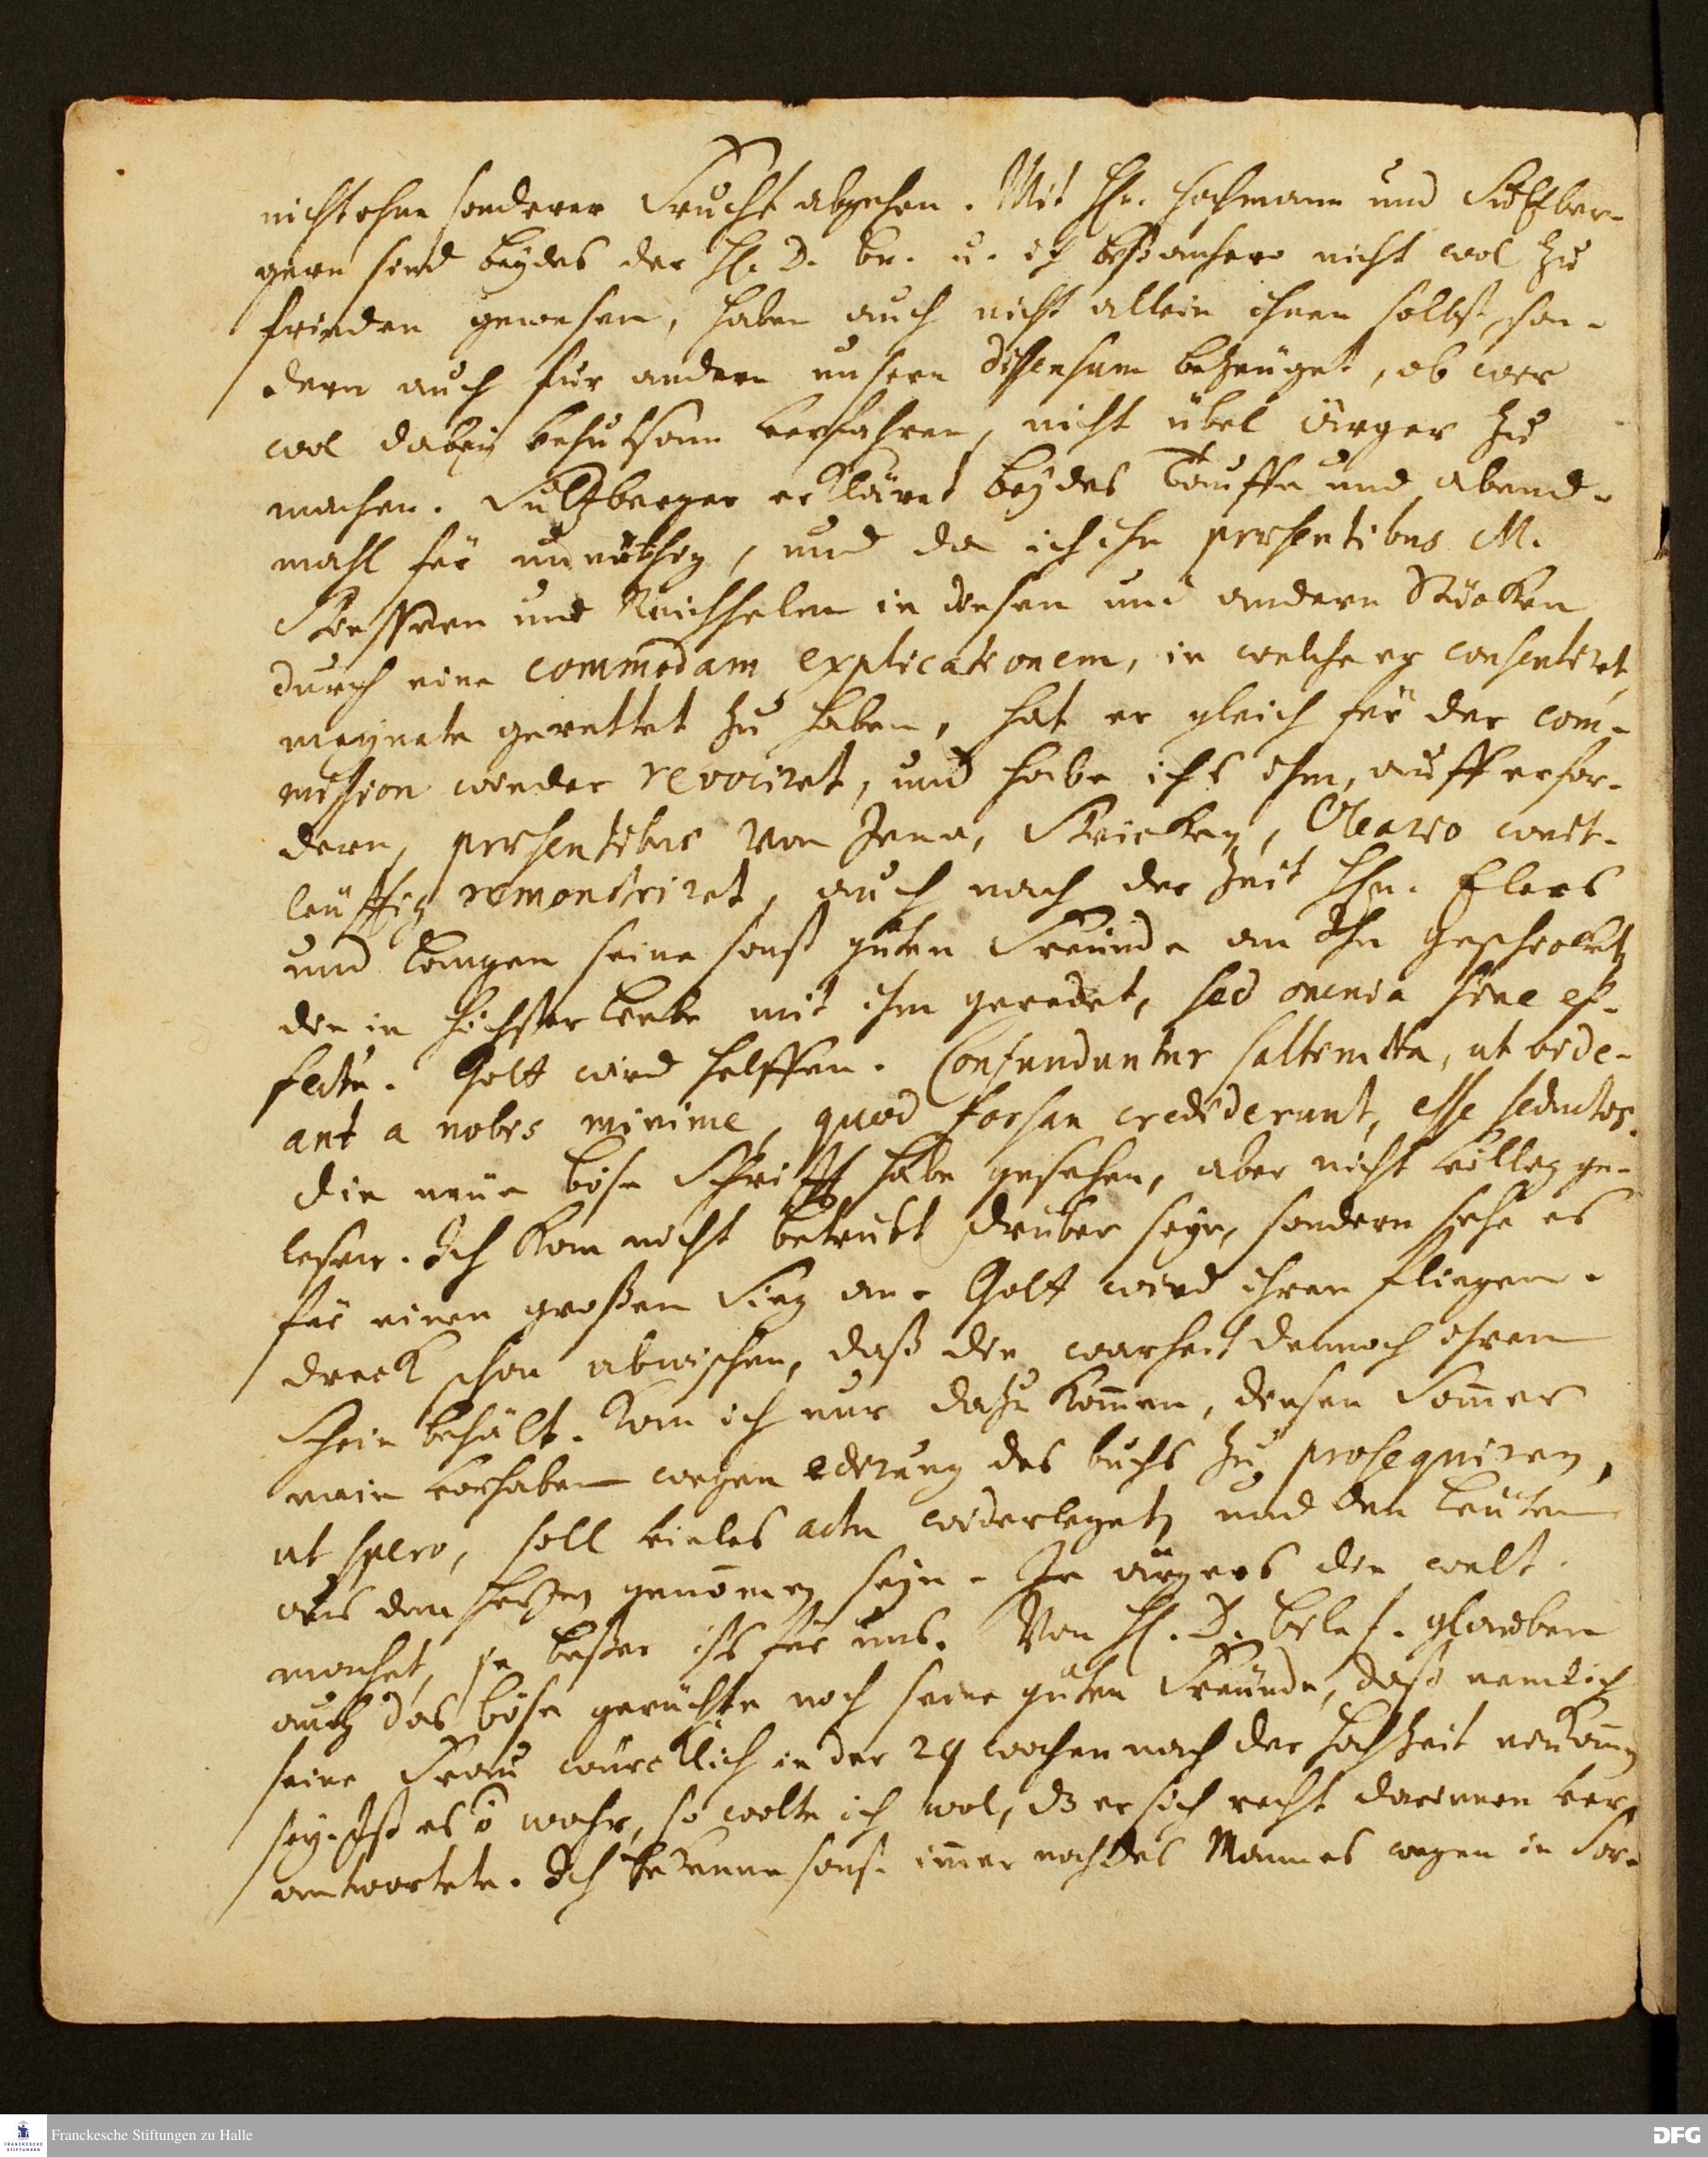 nicht ohne sonderer Frucht abgehen. Mit Hn. Hochmann und Sültzber-
gern sind beydes der H. D. br. u. ich bißanhero nicht wol zu
frieden gewesen, haben auch nicht allein ihnen selbst, son-
dern auch für andern unsern dissensum bezeüget, ob wir
wol dabey behutsam verfahren, nicht übel ärger zu
machen. Sültzberger erkläret beydes Tauffe und abend-
mahl für unnöthig, und da ich ihn præsentibus M.
und Reichhelm in diesen und andern Stücken
durch eine commodam explicationem, in welche er consentiret,
meynete gerettet zu haben, hat er gleich für der com-
mission wieder revociret, und habe ichs ihm, auff erfor-
dern, præsentibus von Jena, Stricken, Oleario weit-
leüfftig remonstriret, auch nach der Zeit Hn. Elers
und Langen seine sonst guten Freunde an Ihn geschickt,
die in höchster Liebe mit ihm geredet, sed omnia sine ef-
fectu. Gott wird helffen. Confundantur saltem ita, ut vide-
ant a nobis minime, quod forsan crediderunt, esse seductos.
die neue böse Schrifft habe gesehen, aber nicht völlig ge-
lesen. Ich kan nicht betrübt drüber seyn, sondern sehe es
für einen großen Sieg an. Gott wird ihren fliegen-
dreck schon abwischen, daß die warheit dennoch ihren
Schein behält. Kan ich nur dazu kommen, diesen Sommer
mein vorhaben wegen edirung des buchs zu prosequiren,
ut spero, soll vieles actu widerleget, und den Leuten
aus dem hertzen genommen seyn. Je ärgers die welt
machet, je beßer ists für uns. Von H. D. glauben
auch das böse gerüchte noch seine guten Freunde, daß nemlich
seine Frau würcklich in der 24 wochen nach der hochzeit niederkommen
sey. Ist es õ wahr, so wolte ich wol, dz er sich recht darinnen ver-
antwortete. Ich bekenne sonst immer noch des Mannes wegen in Sor-
Franckesche Stiftungen zu Halle
DFG
FRANCKESCHE STIFTUNGEN